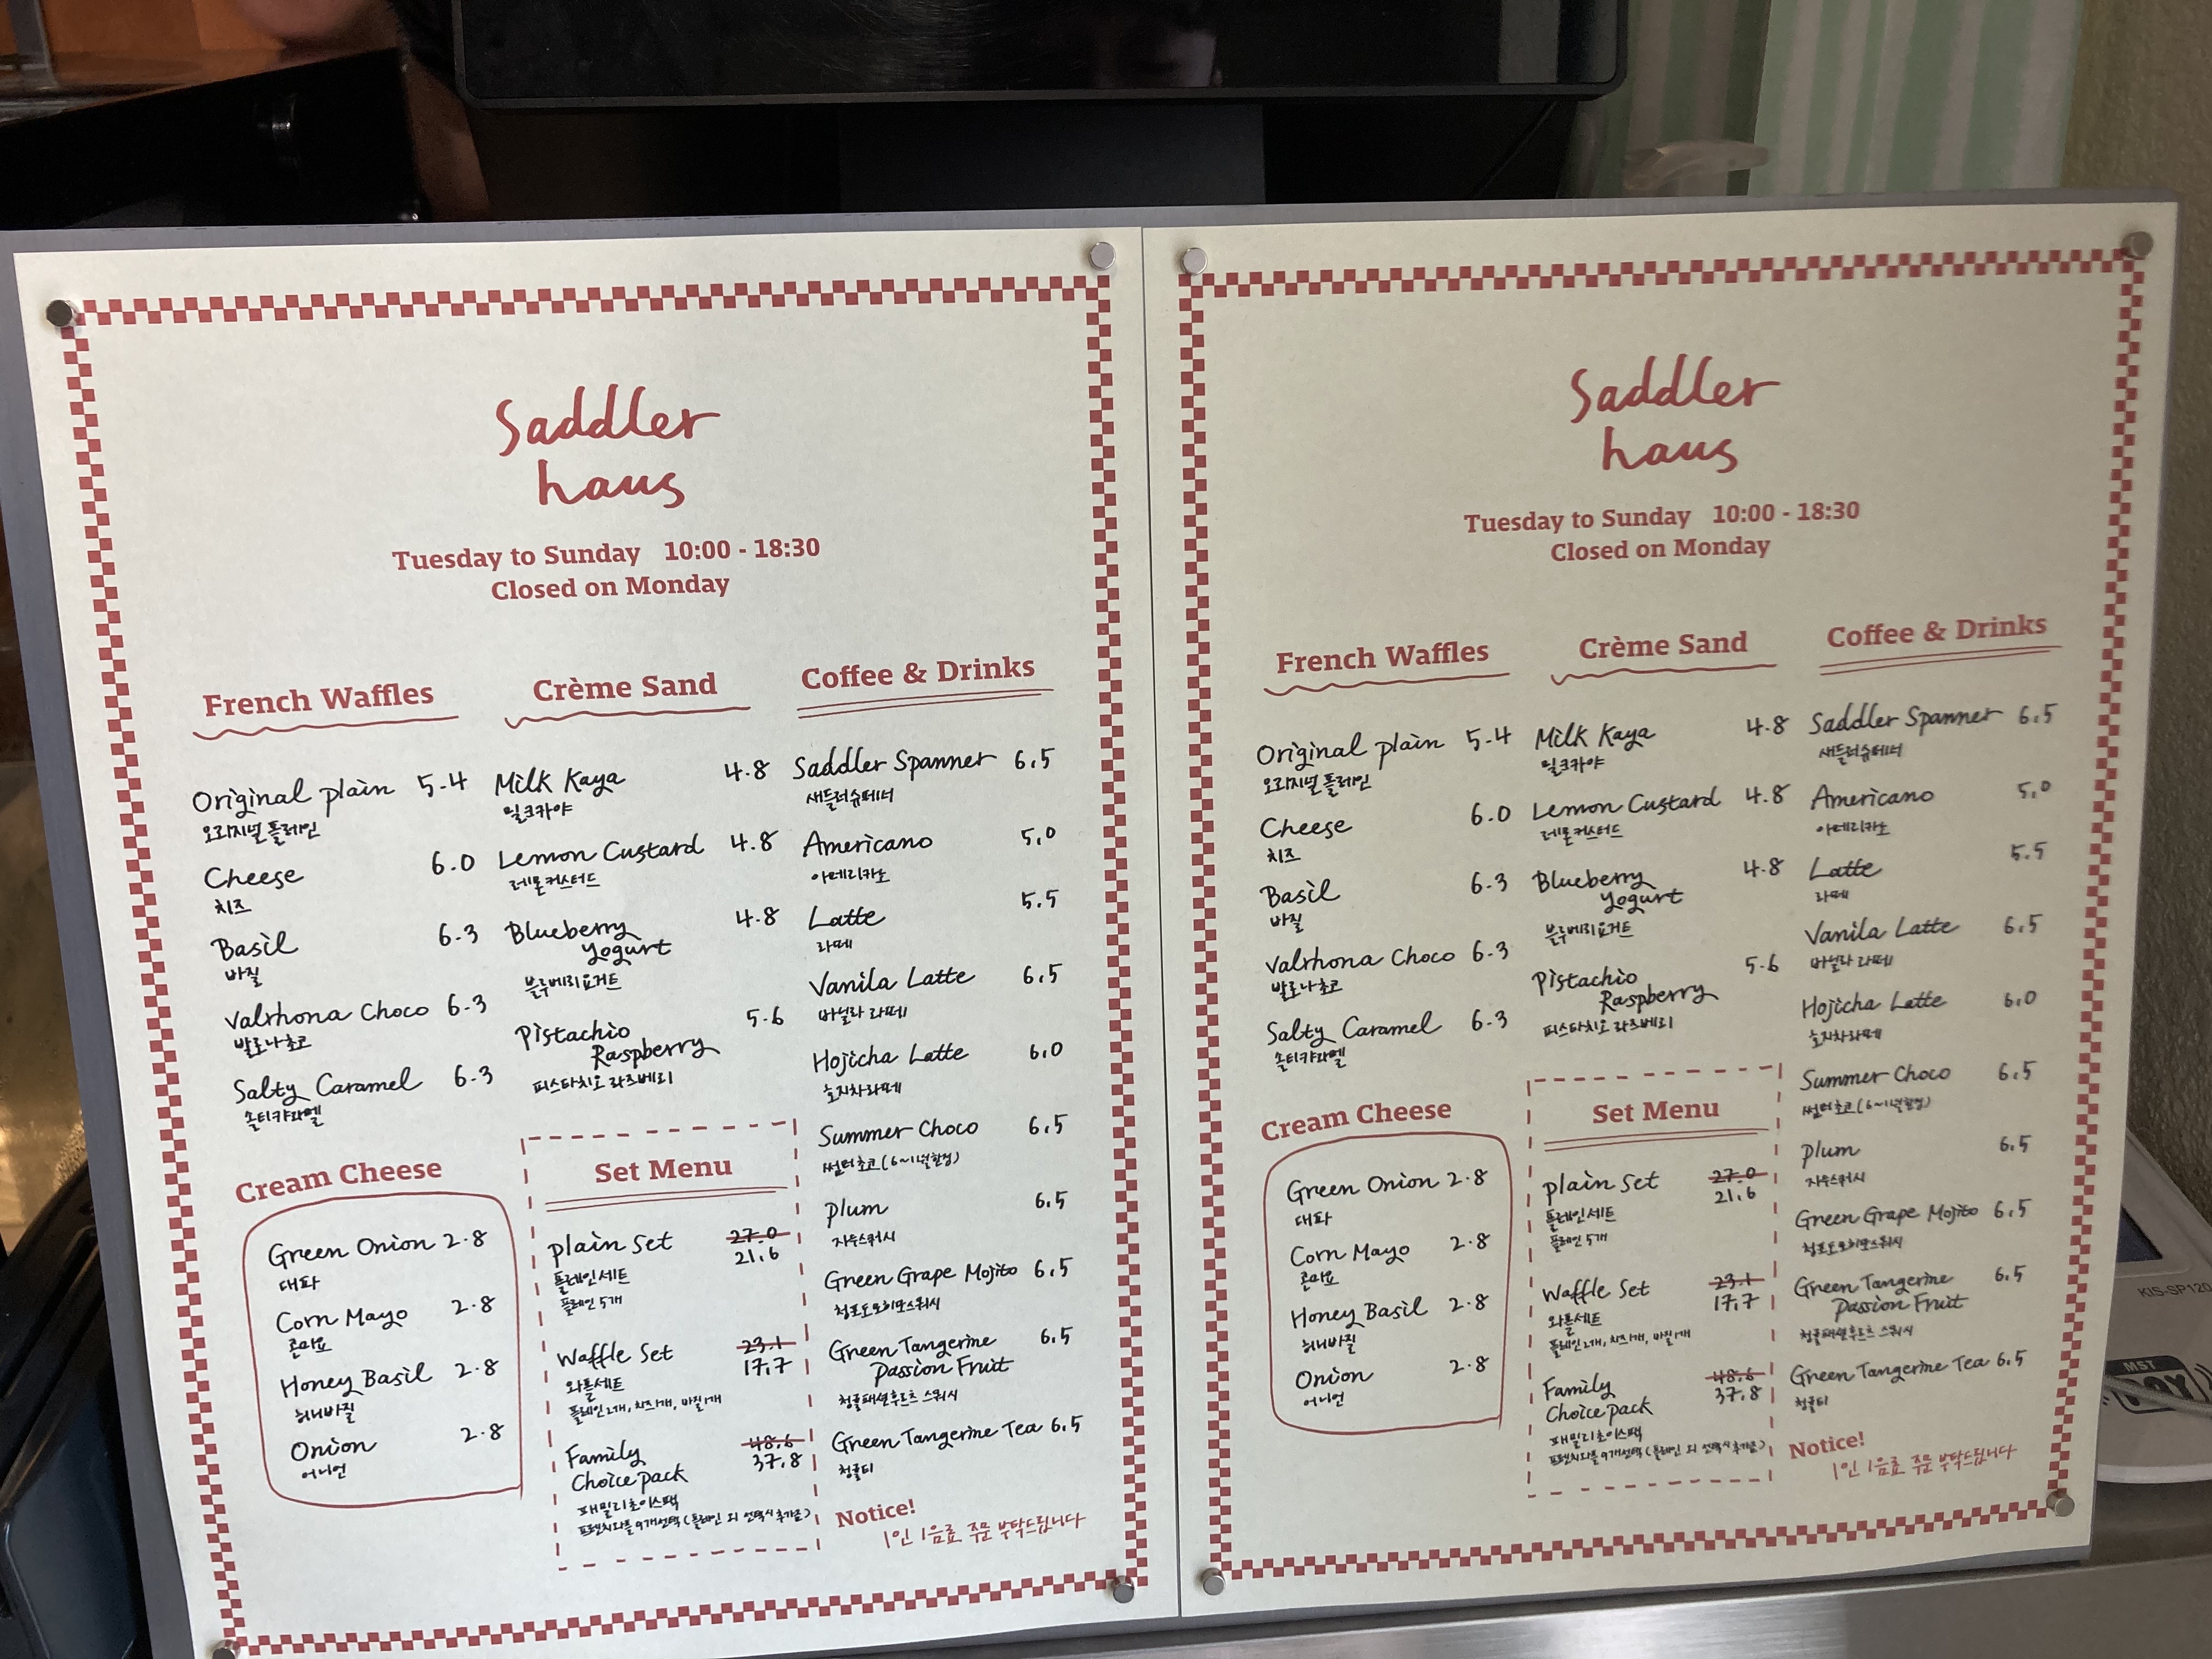 Saddler
haus
Tuesday to Sunday 10:00 - 18:30
Closed on Monday
French Waffles
Original plain 5.4
오리지널 플레인
Cheese 6.0
치즈
Basil 6.3
바질
Valrhona Choco 6.3
발로나초코
Salty Caramel 6.3
솔티캬라멜
Cream Cheese
Green Onion 2.8
대파
Corn Mayo 2.8
콘마요
Honey Basil 2.8
허니바질
Onion 2.8
어니언
Crème Sand
Milk Kaya 4.8
밀크카야
Lemon Custard 4.8
레몬커스터드
Blueberry 4.8
Yogurt
블루베리요거트
Pistachio 5.6
Raspberry
피스타치오 라즈베리
Set Menu
plain Set 27.0
21.6
플레인세트
플레인 5개
Waffle Set 23.1
17.7
와플세트
플레인2개, 치즈1개, 바질1개
Family 48.6
Choice pack 37.8
패밀리초이스팩
프렌치와플 9개선택 (플레인 외 선택시 추가금)
Coffee & Drinks
Saddler Spanner 6.5
새들러슈페너
Americano 5.0
아메리카노
Latte 5.5
라떼
Vanila Latte 6.5
바닐라 라떼
Hojicha Latte 6.0
호지차라떼
Summer Choco 6.5
썸머초코 (6~11월한정)
Plum 6.5
자두스쿼시
Green Grape Mojito 6.5
청포도모히또스쿼시
Green Tangerine 6.5
Passion Fruit
청귤패션후르츠 스쿼시
Green Tangerine Tea 6.5
청귤티
Notice!
1인 1음료 주문 부탁드립니다
Saddler
haus
Tuesday to Sunday 10:00 - 18:30
Closed on Monday
French Waffles
Original plain 5.4
오리지널 플레인
Cheese 6.0
치즈
Basil 6.3
바질
Valrhona Choco 6.3
발로나초코
Salty Caramel 6.3
솔티캬라멜
Cream Cheese
Green Onion 2.8
대파
Corn Mayo 2.8
콘마요
Honey Basil 2.8
허니바질
Onion 2.8
어니언
Crème Sand
Milk Kaya 4.8
밀크카야
Lemon Custard 4.8
레몬커스터드
Blueberry 4.8
Yogurt
블루베리요거트
Pistachio 5.6
Raspberry
피스타치오 라즈베리
Set Menu
plain Set 27.0
21.6
플레인세트
플레인 5개
Waffle Set 23.1
17.7
와플세트
플레인2개, 치즈1개, 바질1개
Family 48.6
Choice pack 37.8
패밀리초이스팩
프렌치와플 9개선택 (플레인 외 선택시 추가금)
Coffee & Drinks
Saddler Spanner 6.5
새들러슈페너
Americano 5.0
아메리카노
Latte 5.5
라떼
Vanila Latte 6.5
바닐라 라떼
Hojicha Latte 6.0
호지차라떼
Summer Choco 6.5
썸머초코 (6~11월한정)
Plum 6.5
자두스쿼시
Green Grape Mojito 6.5
청포도모히또스쿼시
Green Tangerine 6.5
Passion Fruit
청귤패션후르츠 스쿼시
Green Tangerine Tea 6.5
청귤티
Notice!
1인 1음료 주문 부탁드립니다
KIS-SP120
MST